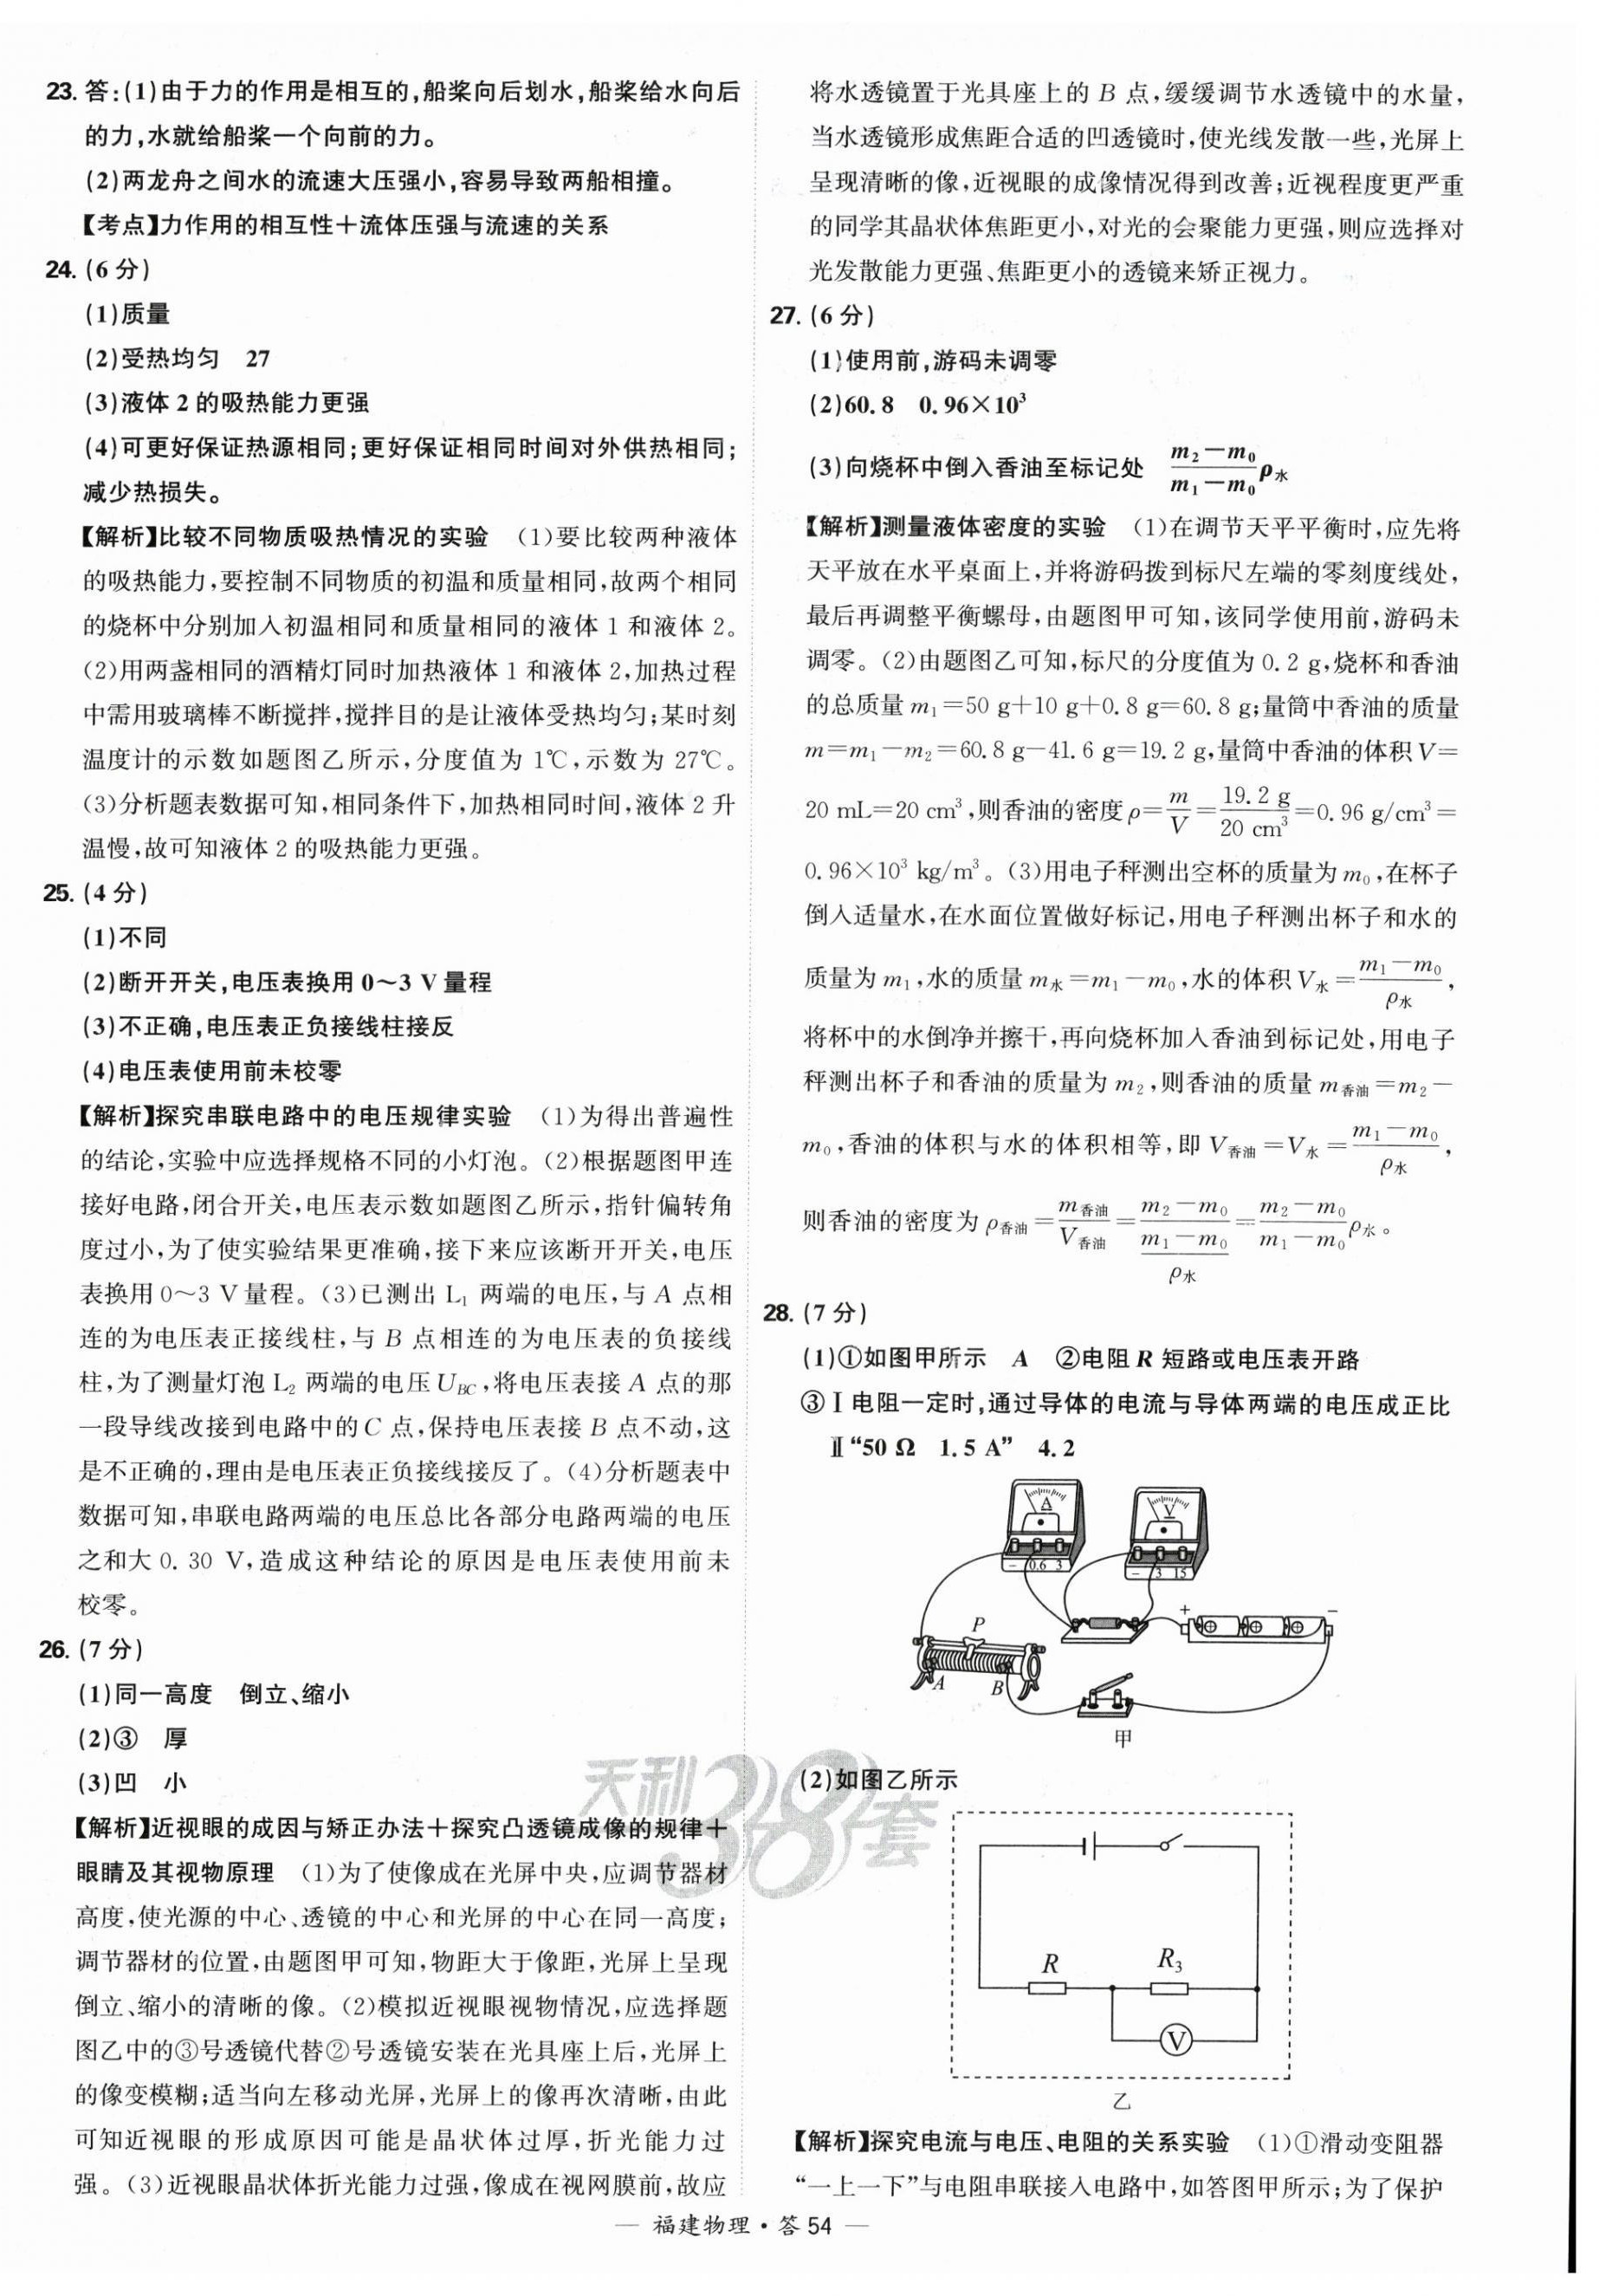 23. 答:(1)由于力的作用是相互的,船桨向后划水,船桨给水向后
的力,水就给船桨一个向前的力。
(2)两龙舟之间水的流速大压强小,容易导致两船相撞。
【考点】力作用的相互性+流体压强与流速的关系
24. (6分)
(1)质量
(2)受热均匀 27
(3)液体2的吸热能力更强
(4)可更好保证热源相同;更好保证相同时间对外供热相同;
减少热损失。
【解析】比较不同物质吸热情况的实验 (1)要比较两种液体
的吸热能力,要控制不同物质的初温和质量相同,故两个相同
的烧杯中分别加入初温相同和质量相同的液体1和液体2。
(2)用两盏相同的酒精灯同时加热液体1和液体2,加热过程
中需用玻璃棒不断搅拌,搅拌目的是让液体受热均匀;某时刻
温度计的示数如题图乙所示,分度值为1℃,示数为27℃。
(3)分析题表数据可知,相同条件下,加热相同时间,液体2升
温慢,故可知液体2的吸热能力更强。
25. (4分)
(1)不同
(2)断开开关,电压表换用0~3 V量程
(3)不正确,电压表正负接线柱接反
(4)电压表使用前未校零
【解析】探究串联电路中的电压规律实验 (1)为得出普遍性
的结论,实验中应选择规格不同的小灯泡。(2)根据题图甲连
接好电路,闭合开关,电压表示数如题图乙所示,指针偏转角
度过小,为了使实验结果更准确,接下来应该断开开关,电压
表换用0~3 V量程。(3)已测出L₁两端的电压,与A点相
连的为电压表正接线柱,与B点相连的为电压表的负接线
柱,为了测量灯泡L₂两端的电压U_BC,将电压表接A点的那
一段导线改接到电路中的C点,保持电压表接B点不动,这
是不正确的,理由是电压表正负接线接反了。(4)分析题表中
数据可知,串联电路两端的电压总比各部分电路两端的电压
之和大0.30 V,造成这种结论的原因是电压表使用前未
校零。
26. (7分)
(1)同一高度 倒立、缩小
(2)③ 厚
(3)凹 小
【解析】近视眼的成因与矫正办法+探究凸透镜成像的规律+
眼睛及其视物原理 (1)为了使像成在光屏中央,应调节器材
高度,使光源的中心、透镜的中心和光屏的中心在同一高度;
调节器材的位置,由题图甲可知,物距大于像距,光屏上呈现
倒立、缩小的清晰的像。(2)模拟近视眼视物情况,应选择题
图乙中的③号透镜代替②号透镜安装在光具座上后,光屏上
的像变模糊;适当向左移动光屏,光屏上的像再次清晰,由此
可知近视眼的形成原因可能是晶状体过厚,折光能力过
强。(3)近视眼晶状体折光能力过强,像成在视网膜前,故应
将水透镜置于光具座上的B点,缓缓调节水透镜中的水量,
当水透镜形成焦距合适的凹透镜时,使光线发散一些,光屏上
呈现清晰的像,近视眼的成像情况得到改善;近视程度更严重
的同学其晶状体焦距更小,对光的会聚能力更强,则应选择对
光发散能力更强、焦距更小的透镜来矫正视力。
27. (6分)
(1)使用前,游码未调零
(2)60.8 0.96×10³
(3)向烧杯中倒入香油至标记处 (m₂-m₀)/(m₁-m₀)ρ水
【解析】测量液体密度的实验 (1)在调节天平平衡时,应先将
天平放在水平桌面上,并将游码拨到标尺左端的零刻度线处,
最后再调整平衡螺母,由题图甲可知,该同学使用前,游码未
调零。(2)由题图乙可知,标尺的分度值为0.2 g,烧杯和香油
的总质量m₁=50 g+10 g+0.8 g=60.8 g;量筒中香油的质量
m=m₁-m₂=60.8 g-41.6 g=19.2 g,量筒中香油的体积V=
20 mL=20 cm³,则香油的密度ρ=m/V=19.2 g/20 cm³=0.96 g/cm³=
0.96×10³ kg/m³。(3)用电子秤测出空杯的质量为m₀,在杯子
倒入适量水,在水面位置做好标记,用电子秤测出杯子和水的
质量为m₁,水的质量m水=m₁-m₀,水的体积V水=(m₁-m₀)/ρ水,
将杯中的水倒净并擦干,再向烧杯加入香油到标记处,用电子
秤测出杯子和香油的质量为m₂,则香油的质量m香油=m₂-
m₀,香油的体积与水的体积相等,即V香油=V水=(m₁-m₀)/ρ水,
则香油的密度为ρ香油=m香油/V香油=(m₂-m₀)/((m₁-m₀)/ρ水)=(m₂-m₀)/(m₁-m₀)ρ水。
28. (7分)
(1)①如图甲所示 A ②电阻R短路或电压表开路
③Ⅰ电阻一定时,通过导体的电流与导体两端的电压成正比
Ⅱ“50 Ω 1.5 A” 4.2
A
- 0.6 3
V
- 3 15
P
A
B
+
-
甲
(2)如图乙所示
R
R₃
V
乙
【解析】探究电流与电压、电阻的关系实验 (1)①滑动变阻器
“一上一下”与电阻串联接入电路中,如答图甲所示;为了保护
天利38套
— 福建物理·答54 —